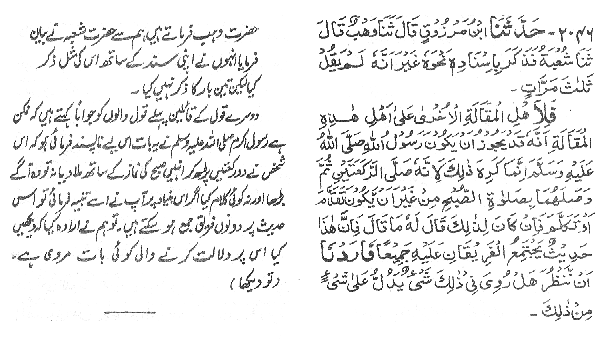 ۲۰۴۶ - حَدَّثَنَا ابْنُ مَرْزُوْقٍ قَالَ ثَنَا وَهْبٌ قَالَ
ثَنَا شُعْبَةُ فَذَكَرَ بِاِسْنَادِهٖ نَحْوَهٗ غَيْرَ اَنَّهٗ لَمْ يَقُلْ
ثَلٰثَ مَرَّاتٍ۔
فَلِاَهْلِ الْمَقَالَةِ الْاُخْرٰى عَلٰى اَهْلِ هٰذِهِ
الْمَقَالَةِ اَنَّهٗ قَدْ يَجُوْزُ اَنْ يَكُوْنَ رَسُوْلُ اللهِ صَلَّى اللهُ
عَلَيْهِ وَسَلَّمَ اِنَّمَا كَرِهَ ذٰلِكَ لِاَنَّهٗ صَلَّى الرَّكْعَتَيْنِ ثُمَّ
وَصَلَهُمَا بِصَلٰوةِ الصُّبْحِ مِنْ غَيْرِ اَنْ يَكُوْنَ تَقَدَّمَ
اَوْ تَكَلَّمَ فَاِنْ كَانَ لِذٰلِكَ قَالَ لَهٗ مَا قَالَ فَاِنَّ هٰذَا
حَدِيْثٌ يَجْتَمِعُ الْفَرِيْقَانِ عَلَيْهِ جَمِيْعًا فَاَرَدْنَا
اَنْ نَّنْظُرَ هَلْ رُوِىَ فِىْ ذٰلِكَ شَىْءٌ يَدُلُّ عَلٰى شَىْءٍ
مِنْ ذٰلِكَ۔
حضرت وہب فرماتے ہیں ہم سے حضرت شعبہ نے بیان
فرمایا انہوں نے اپنی سند کے ساتھ اس کی مثل ذکر
کیا لیکن تین بار کا ذکر نہیں کیا۔
دوسرے قول کے قائلین پہلے قول والوں کو جواباً کہتے ہیں کہ ممکن
ہے رسول اکرم صلی اللہ علیہ وسلم نے یہ بات اس لیے ناپسند فرمائی ہو کہ اس
شخص نے دو رکعتیں پڑھ کر انہیں صبح کی نماز کے ساتھ ملا دیا نہ تو وہ آگے
بڑھا اور نہ کوئی کلام کیا اگر اس بنیاد پر آپ نے اسے تنبیہ فرمائی تو اس
حدیث پر دونوں فریق جمع ہو سکتے ہیں۔ تو ہم نے ارادہ کیا کہ دیکھیں
کیا اس پر دلالت کرنے والی کوئی بات مروی ہے۔
(تو دیکھا)